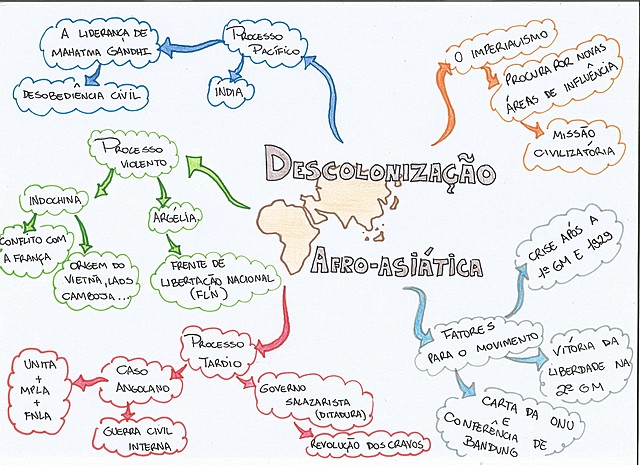 DESCOLONIZAÇÃO
AFRO-ASIÁTICA
PROCESSO
PACÍFICO
A LIDERANÇA DE
MAHATMA GANDHI
DESOBEDIÊNCIA CIVIL
ÍNDIA
O IMPERIALISMO
PROCURA POR NOVAS
ÁREAS DE INFLUÊNCIA
MISSÃO
CIVILIZATÓRIA
PROCESSO
VIOLENTO
INDOCHINA
CONFLITO COM
A FRANÇA
ORIGEM DO
VIETNÃ, LAOS
CAMBOJA...
ARGÉLIA
FRENTE DE
LIBERTAÇÃO NACIONAL
(FLN)
FATORES
PARA O MOVIMENTO
CRISE APÓS A
1ª GM E 1929
VITÓRIA DA
LIBERDADE NA
2ª GM
CARTA DA ONU
E
CONFERÊNCIA DE
BANDUNG
PROCESSO
TARDIO
CASO
ANGOLANO
UNITA
+
MPLA
+
FNLA
GUERRA CIVIL
INTERNA
GOVERNO
SALAZARISTA
(DITADURA)
REVOLUÇÃO DOS CRAVOS